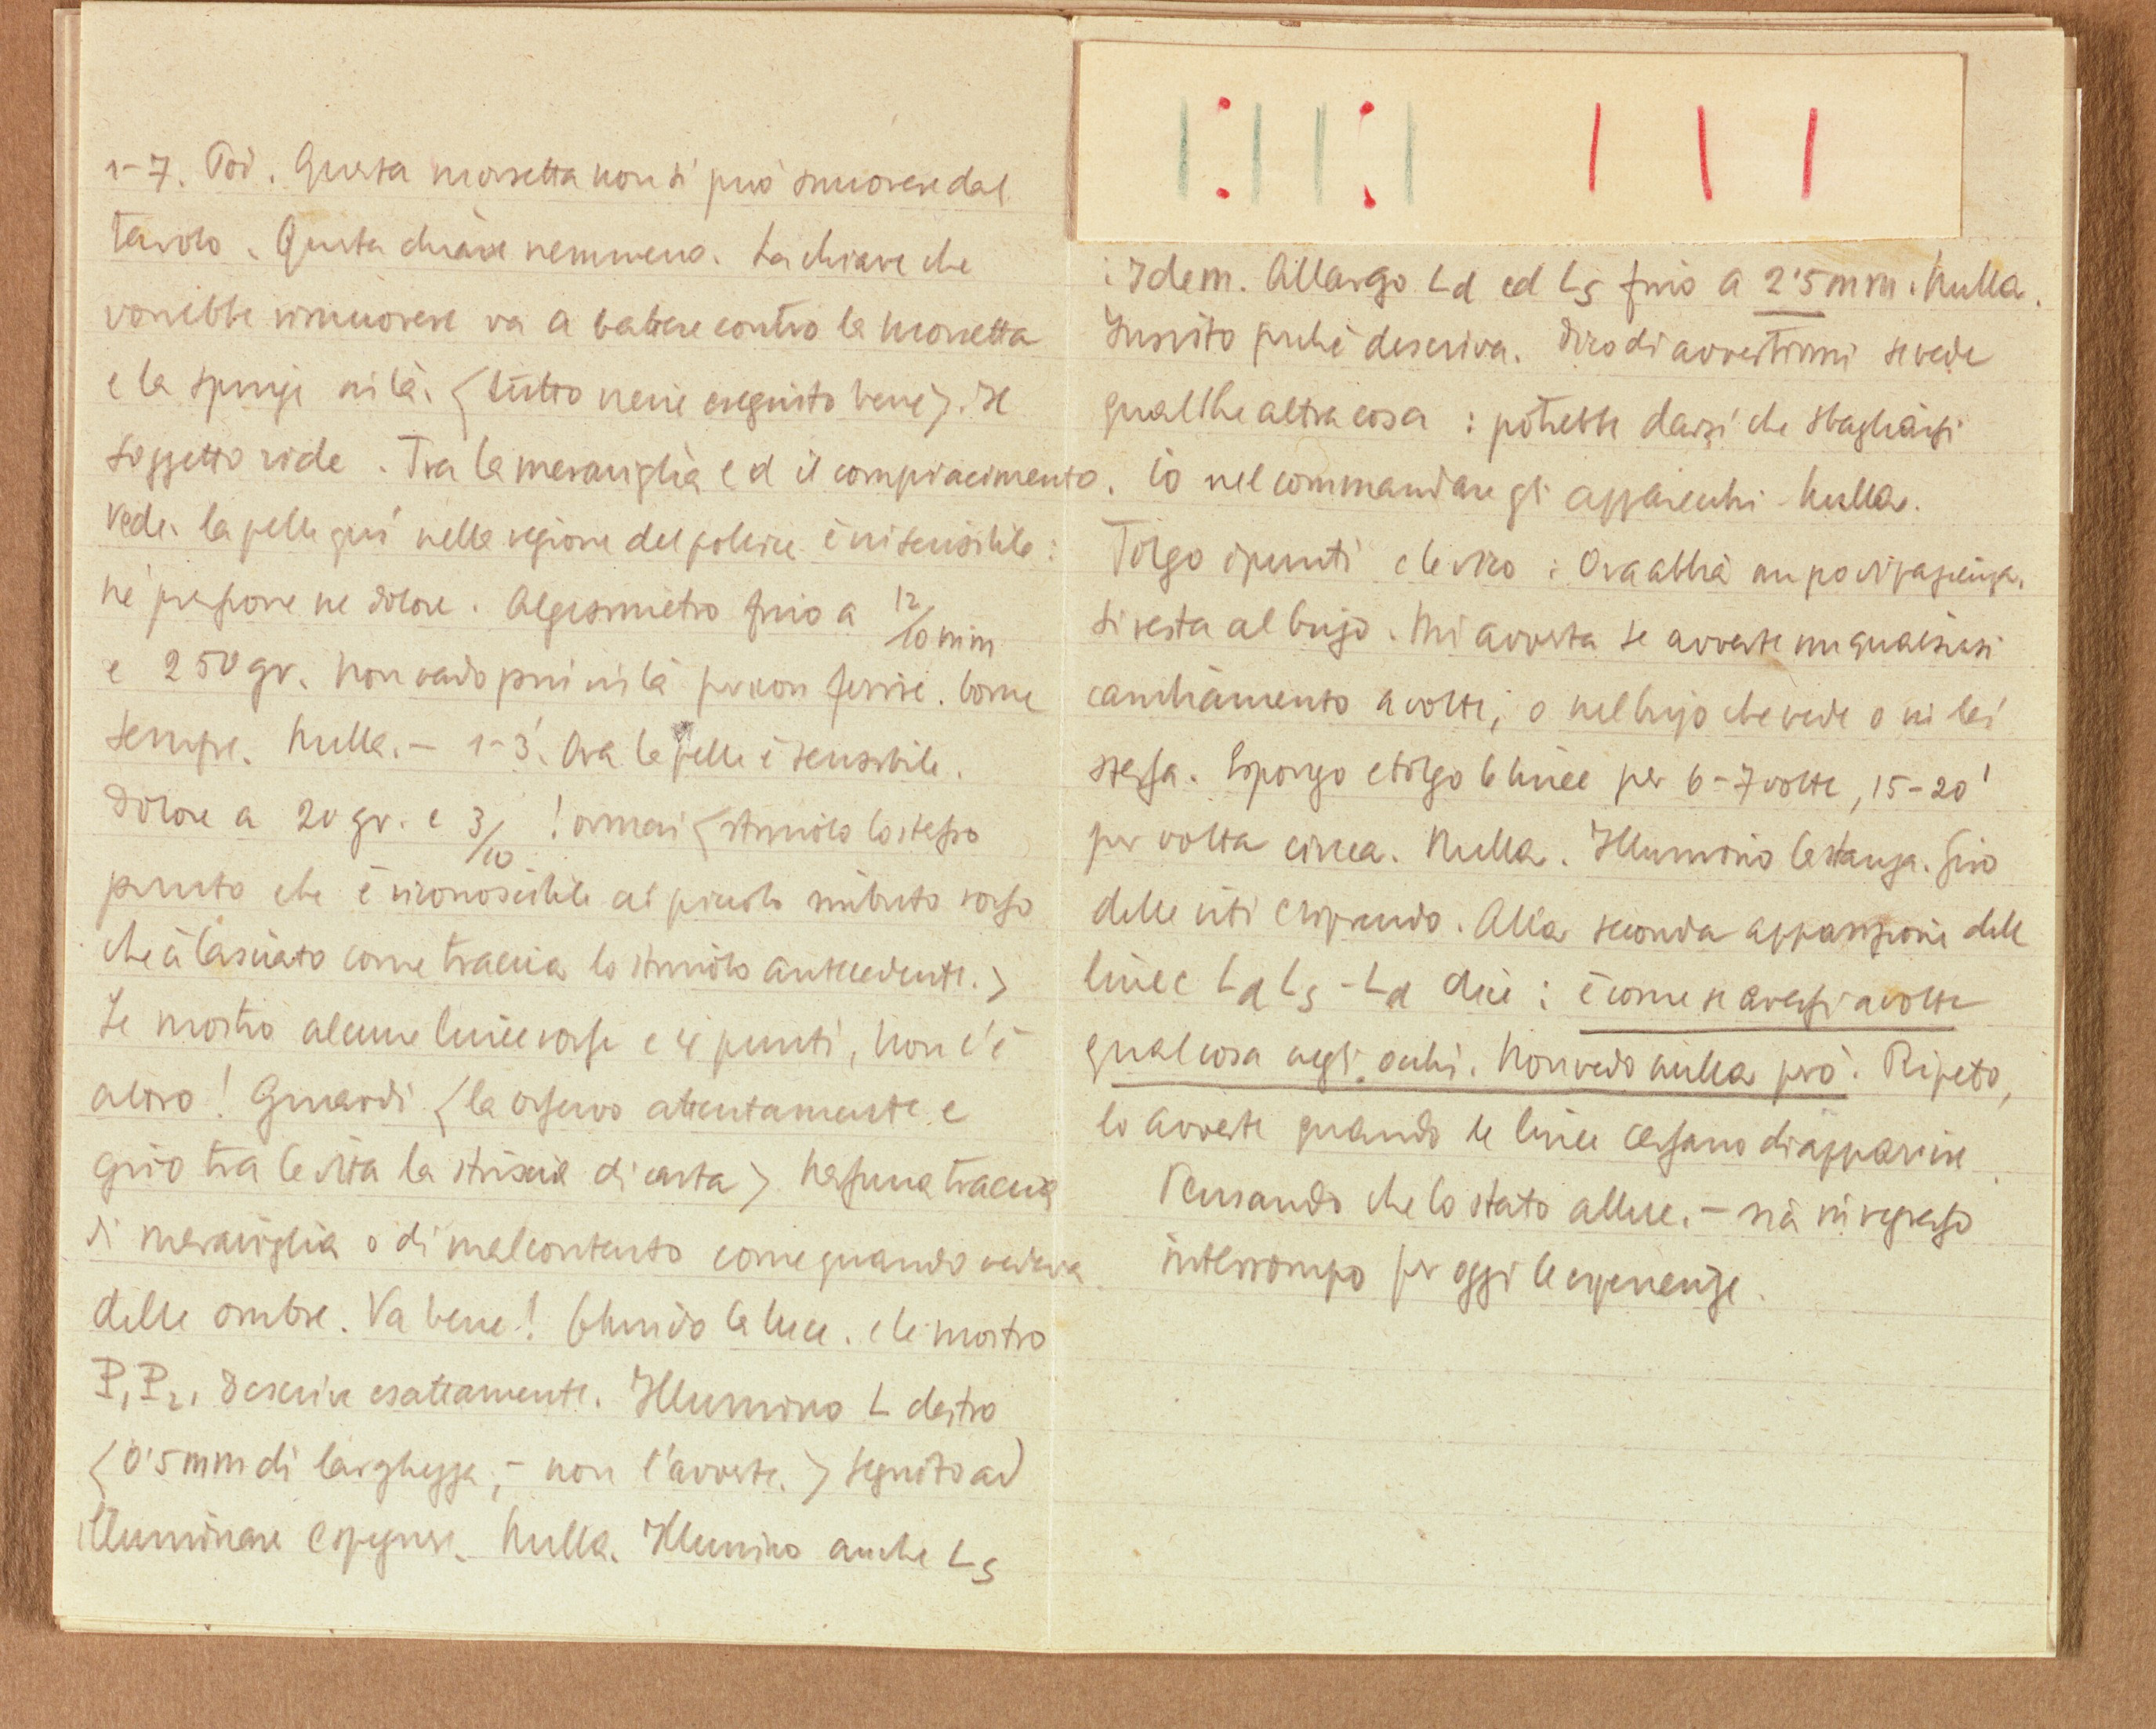 1-7. Poi. Questa morsetta non si può smuovere dal
tavolo. Questa chiave nemmeno. La chiave che
vorrebbe rimuovere va a battere contro la morsetta
e la spinge in là. <tutto viene eseguito bene>. Il
soggetto ride. Tra la meraviglia ed il compiacimento.
Vede. la pelle qui nella regione del pollice è insensibile:
nè pressione ne dolore. Algesimetro fino a 12/10 mm
e 250 gr. Non vado più in là per non ferire. Come
sempre. Nulla. - 1-3'. Ora la pelle è sensibile.
Dolore a 20 gr. e 3/10 ! ormai <stimolo lo stesso
punto che è riconoscibile al piccolo infiltrato rosso
che à lasciato come traccia lo stimolo antecedente.>
Le mostro alcune linee rosse e 4 punti, non c'è
altro! Guardi <la osservo attentamente e
giro tra le dita la striscia di carta> nessuna traccia
di meraviglia o di malcontento come quando vedeva
delle ombre. Va bene! Chiudo la luce. e le mostro
P1 P2, descrive esattamente. Illumino L destro
<0'5 mm di larghezza, - non l'avverte.> Seguito ad
illuminare e spegnere. Nulla. Illumino anche Ls
: Idem. Allargo Ld ed Ls fino a 2'5 mm. Nulla.
Insisto perchè descriva. Dico di avvertirmi se vede
qualche altra cosa : potrebbe darsi che sbagliassi
io nel commandare gli apparecchi - Nulla.
Tolgo i punti e le dico : Ora abbia un po di pazienza.
Si resta al bujo. Mi avverta se avverte un qualsiasi
cambiamento a volte, o nel bujo che vede o in lei
stessa. Espongo e tolgo le linee per 6-7 volte, 15-20'
per volta circa. Nulla. Illumino la stanza. Giro
delle viti e riprendo. Alla seconda apparizione delle
linee Ld Ls - Ld dice : è come se avessi a volte
qualcosa negli occhi. Non vedo nulla però. Ripeto,
lo avverte quando le linee cessano di apparire
Pensando che lo stato alluc. - sia in regresso
interrompo per oggi le esperienze.